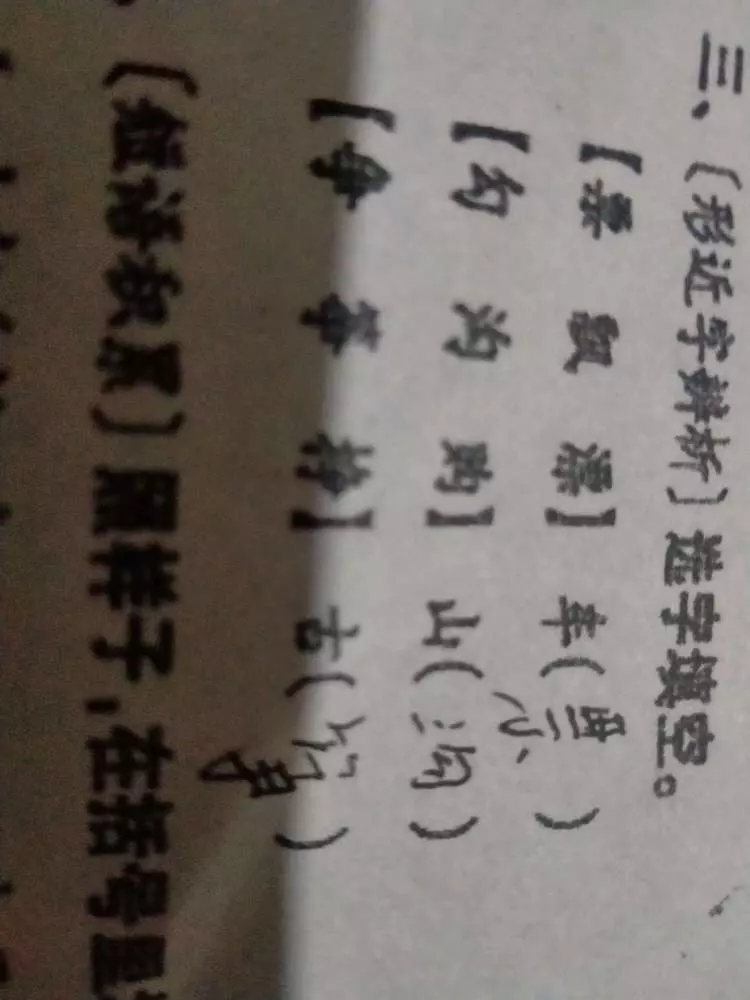 三、〔形近字辨析〕选字填空。
【票 飘 漂】 车(票)
【勾 沟 购】 山(沟)
【争 筝 挣】 古(筝)
〔短语积累〕照样子，在括号里